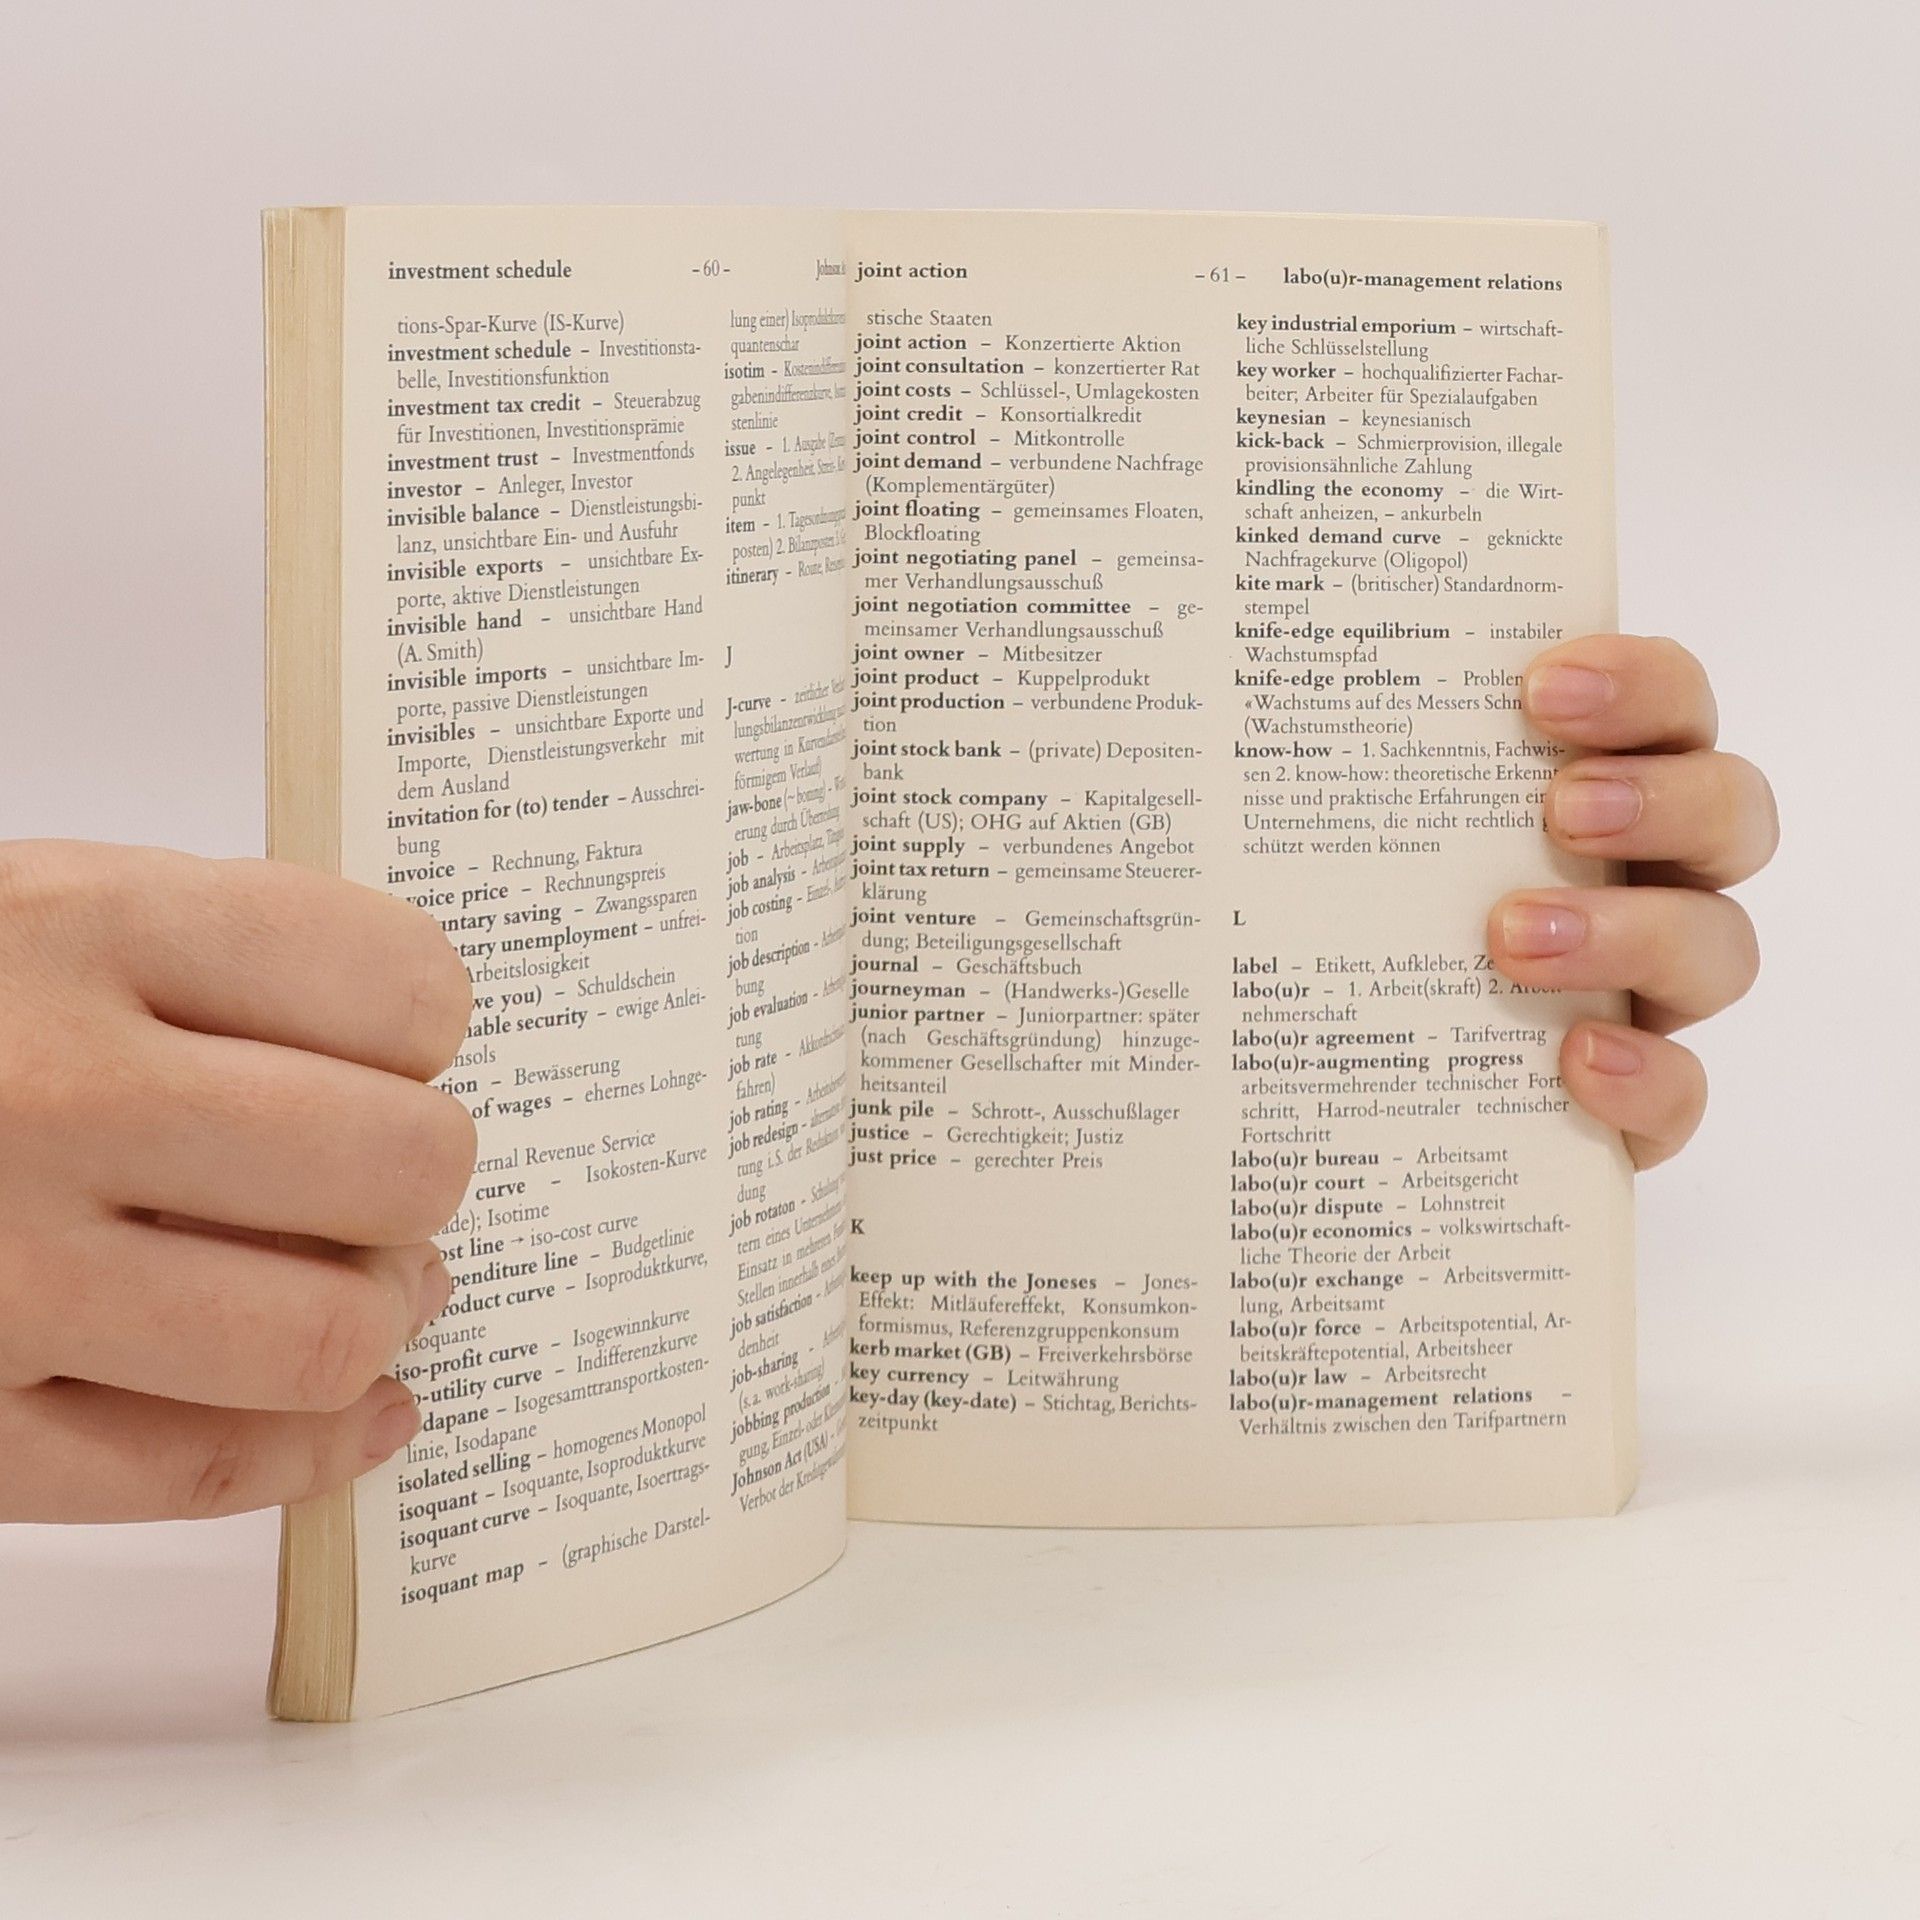 investment schedule
– 60 –
tions-Spar-Kurve (IS-Kurve)
investment schedule – Investitionsta-
belle, Investitionsfunktion
investment tax credit – Steuerabzug
für Investitionen, Investitionsprämie
investment trust – Investmentfonds
investor – Anleger, Investor
invisible balance – Dienstleistungsbi-
lanz, unsichtbare Ein- und Ausfuhr
invisible exports – unsichtbare Ex-
porte, aktive Dienstleistungen
invisible hand – unsichtbare Hand
(A. Smith)
invisible imports – unsichtbare Im-
porte, passive Dienstleistungen
invisibles – unsichtbare Exporte und
Importe, Dienstleistungsverkehr mit
dem Ausland
invitation for (to) tender – Ausschrei-
bung
invoice – Rechnung, Faktura
price – Rechnungspreis
saving – Zwangssparen
unemployment – unfrei-
Arbeitslosigkeit
you) – Schuldschein
security – ewige Anlei-
– Bewässerung
of wages – ehernes Lohnge-
Revenue Service
curve – Isokosten-Kurve
Isotime
line → iso-cost curve
line – Budgetlinie
curve – Isoproduktkurve,
Isoquante
iso-profit curve – Isogewinnkurve
curve – Indifferenzkurve
– Isogesamttransportkosten-
linie, Isodapane
isolated selling – homogenes Monopol
isoquant – Isoquante, Isoproduktkurve
isoquant curve – Isoquante, Isoertrags-
kurve
isoquant map – (graphische Darstel-
lung einer)
quantenschar
isotim –
stenlinie
issue – 1. Ausgabe
2. Angelegenheit,
punkt
item – 1.
posten) 2. Bilanzposten
itinerary – Route,
J
J-curve – zeitlicher
wertung in
förmigem Verlauf)
jaw-bone
erung durch
job – Arbeitsplatz,
job analysis –
job costing –
tion
job description –
bung
job evaluation –
tung
job rate –
fahren)
job rating –
job redesign –
tung i.S. der
dung
job rotaton – Schulung
tern eines
Einsatz in mehreren
Stellen innerhalb
job satisfaction –
denheit
job-sharing –
(s. a. work-sharing)
jobbing production –
gung, Einzel- oder
Johnson Act (USA) –
Verbot der
joint action
– 61 –
labo(u)r-management relations
stische Staaten
joint action – Konzertierte Aktion
joint consultation – konzertierter Rat
joint costs – Schlüssel-, Umlagekosten
joint credit – Konsortialkredit
joint control – Mitkontrolle
joint demand – verbundene Nachfrage
(Komplementärgüter)
joint floating – gemeinsames Floaten,
Blockfloating
joint negotiating panel – gemeinsa-
mer Verhandlungsausschuß
joint negotiation committee – ge-
meinsamer Verhandlungsausschuß
joint owner – Mitbesitzer
joint product – Kuppelprodukt
joint production – verbundene Produk-
tion
joint stock bank – (private) Depositen-
bank
joint stock company – Kapitalgesell-
schaft (US); OHG auf Aktien (GB)
joint supply – verbundenes Angebot
joint tax return – gemeinsame Steuerer-
klärung
joint venture – Gemeinschaftsgrün-
dung; Beteiligungsgesellschaft
journal – Geschäftsbuch
journeyman – (Handwerks-)Geselle
junior partner – Juniorpartner: später
(nach Geschäftsgründung) hinzuge-
kommener Gesellschafter mit Minder-
heitsanteil
junk pile – Schrott-, Ausschußlager
justice – Gerechtigkeit; Justiz
just price – gerechter Preis
K
keep up with the Joneses – Jones-
Effekt: Mitläufereffekt, Konsumkon-
formismus, Referenzgruppenkonsum
kerb market (GB) – Freiverkehrsbörse
key currency – Leitwährung
key-day (key-date) – Stichtag, Berichts-
zeitpunkt
key industrial emporium – wirtschaft-
liche Schlüsselstellung
key worker – hochqualifizierter Fachar-
beiter; Arbeiter für Spezialaufgaben
keynesian – keynesianisch
kick-back – Schmierprovision, illegale
provisionsähnliche Zahlung
kindling the economy – die Wirt-
schaft anheizen, – ankurbeln
kinked demand curve – geknickte
Nachfragekurve (Oligopol)
kite mark – (britischer) Standardnorm-
stempel
knife-edge equilibrium – instabiler
Wachstumspfad
knife-edge problem – Problem
«Wachstums auf des Messers
(Wachstumstheorie)
know-how – 1. Sachkenntnis, Fachwis-
sen 2. know-how: theoretische Erkennt-
nisse und praktische Erfahrungen
Unternehmens, die nicht rechtlich
schützt werden können
L
label – Etikett, Aufkleber,
labo(u)r – 1. Arbeit(skraft) 2. Arbeit-
nehmerschaft
labo(u)r agreement – Tarifvertrag
labo(u)r-augmenting progress
arbeitsvermehrender technischer Fort-
schritt, Harrod-neutraler technischer
Fortschritt
labo(u)r bureau – Arbeitsamt
labo(u)r court – Arbeitsgericht
labo(u)r dispute – Lohnstreit
labo(u)r economics – volkswirtschaft-
liche Theorie der Arbeit
labo(u)r exchange – Arbeitsvermitt-
lung, Arbeitsamt
labo(u)r force – Arbeitspotential, Ar-
beitskräftepotential, Arbeitsheer
labo(u)r law – Arbeitsrecht
labo(u)r-management relations –
Verhältnis zwischen den Tarifpartnern